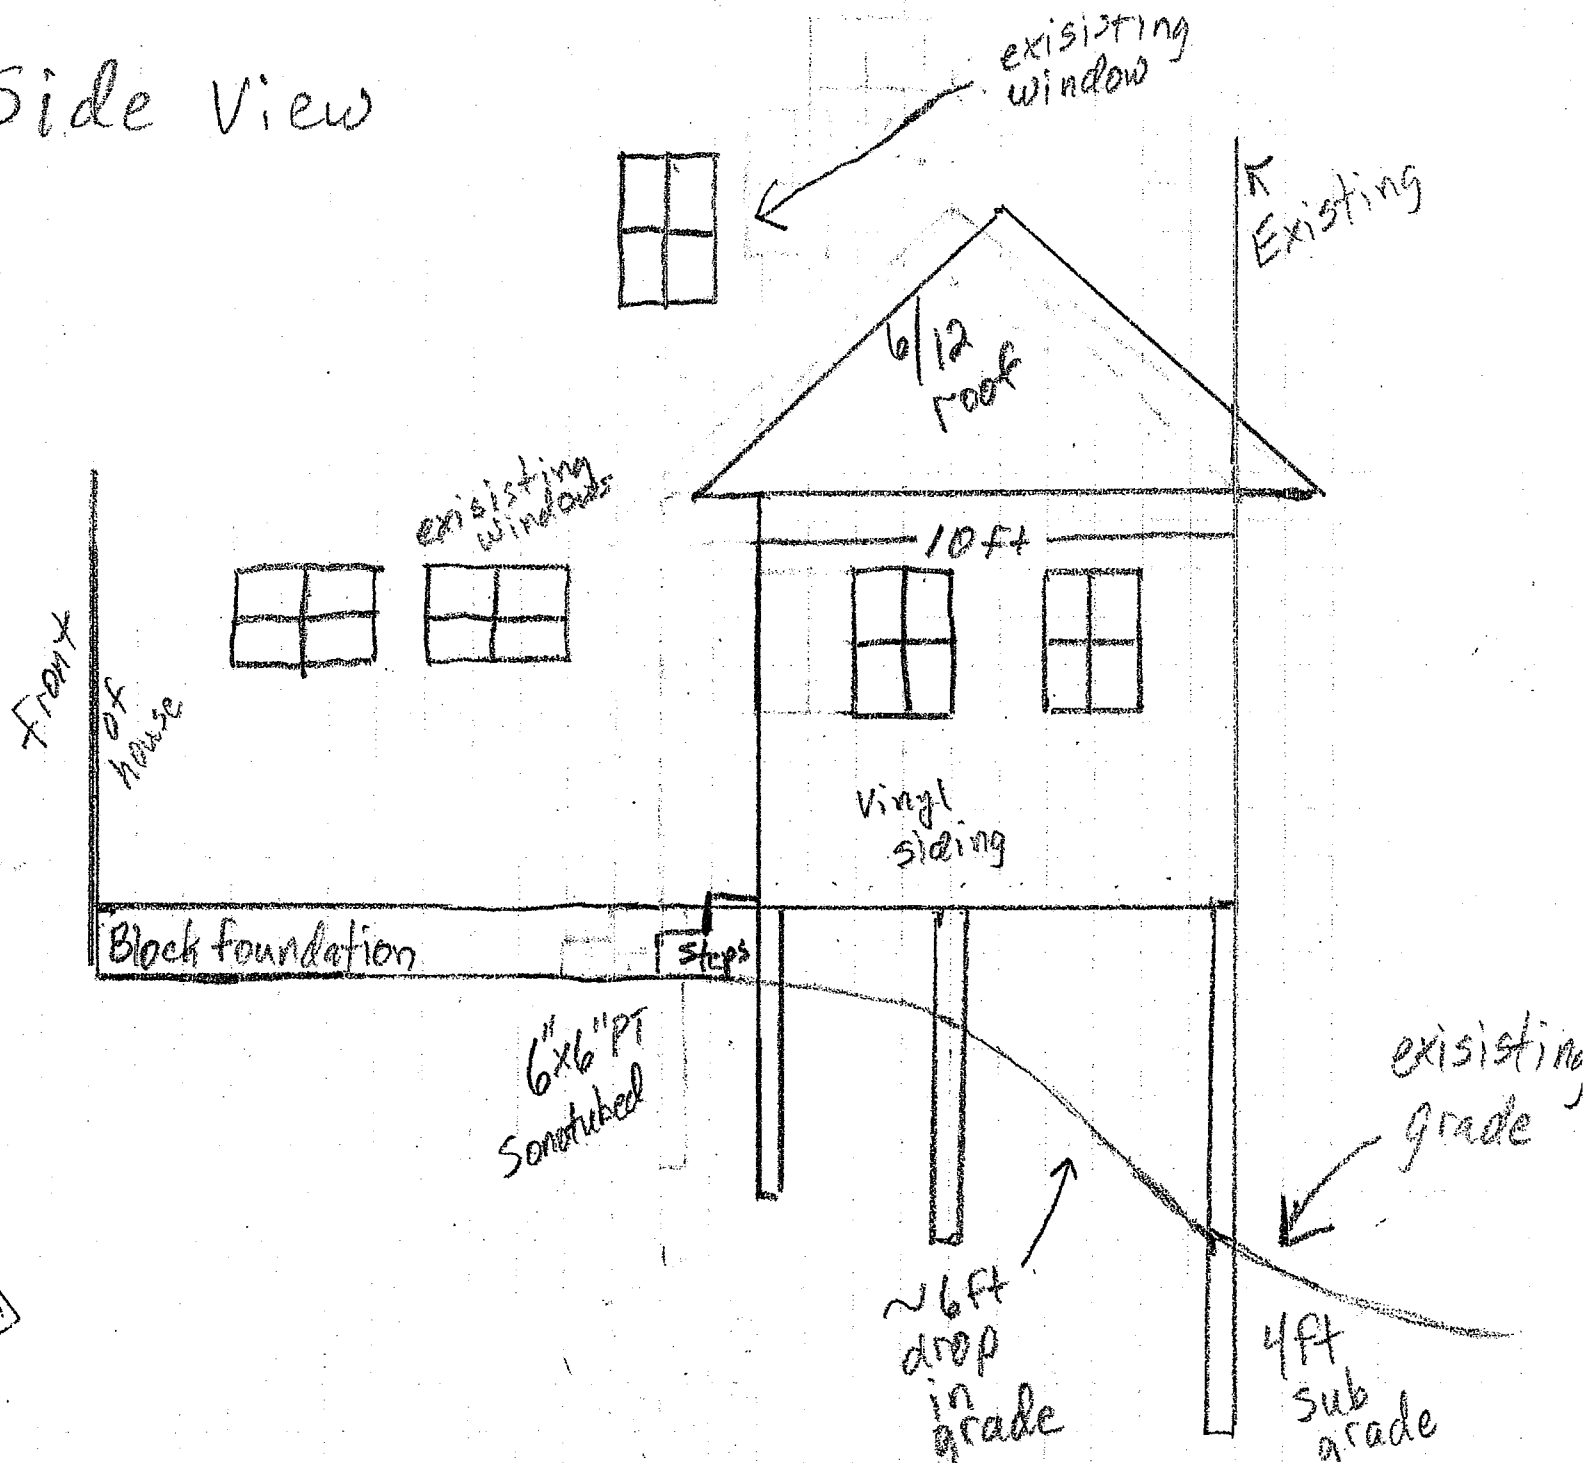 Side View
exisisting
window
Existing
6/12
roof
exisisting
windows
10 ft
Front
of
house
Vinyl
siding
Block foundation
Steps
6"x6" PT
Sonotubed
exisisting
grade
~6ft
drop
in
grade
4ft
sub
grade